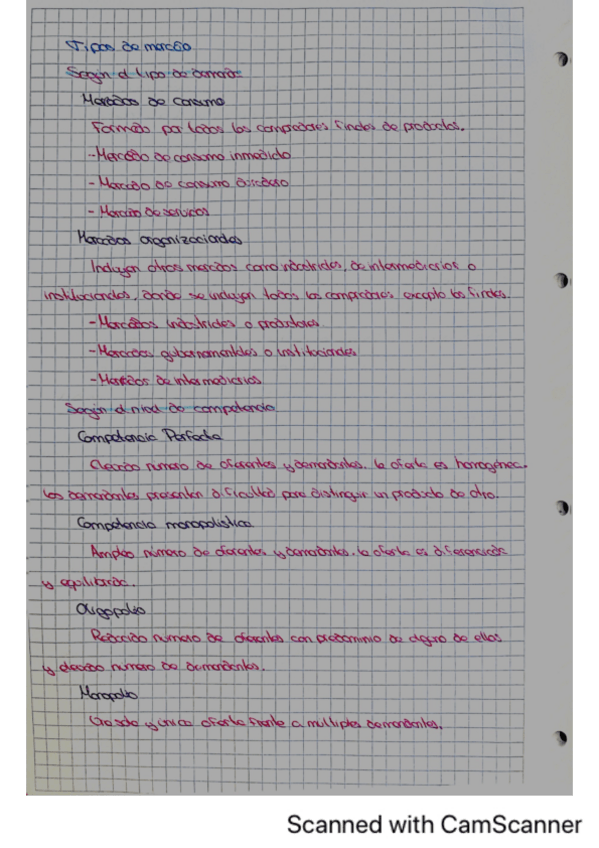 Tipos de mercado
Según el tipo de demanda
Mercados de consumo
Formado por todos los compradores finales de productos.
-Mercado de consumo inmediato
-Mercado de consumo duradero
-Mercado de servicios
Mercados organizacionales
Incluyen otros mercados como industriales, de intermediarios o
institucionales, donde se incluyen todos los compradores excepto los finales.
-Mercados industriales o productores
-Mercados gubernamentales o institucionales
-Mercados de intermediarios
Según el nivel de competencia
Competencia Perfecta
Elevado numero de oferentes y demandantes. la oferta es homogénea.
los demandantes presentan dificultad para distinguir un producto de otro.
Competencia monopolística
Amplio numero de oferentes y demandantes. la oferta es diferenciada
y equilibrada.
Oligopolio
Reducido numero de oferentes con predominio de alguno de ellos
y elevado numero de demandantes.
Monopolio
Un solo y único oferta frente a multiples demandantes.
Scanned with CamScanner